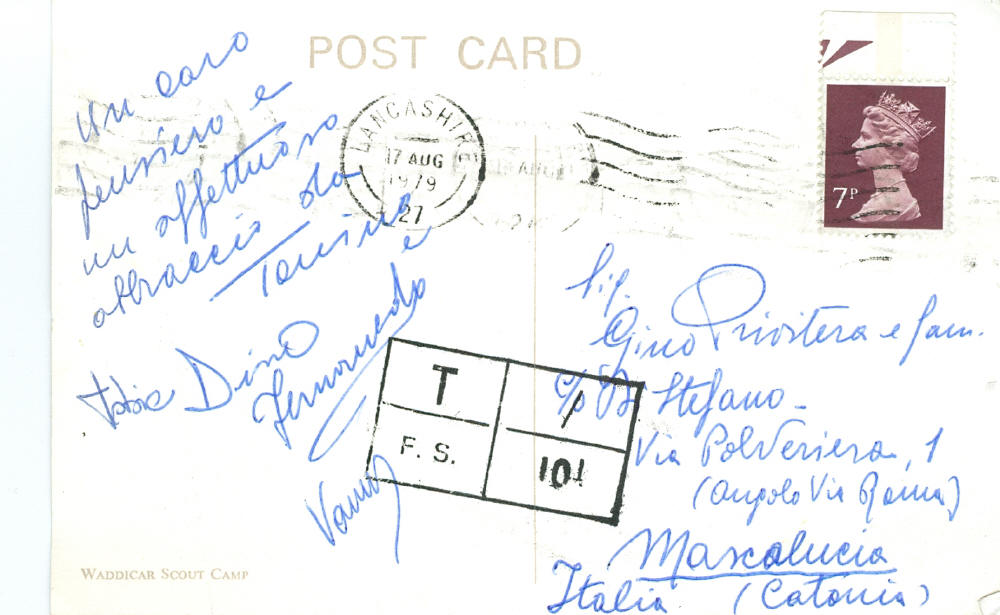 POST CARD
Un caro
pensiero e
un affettuoso
abbraccio da
Tonino
e
Dino
Fernando
LANCASHIRE
17 AUG
1979
27
7P
Sig.
Gino Privitera e fam.
c/o Di Stefano -
Via Polveriera, 1
(angolo Via Roma)
Mascalucia
Italia (Catania)
T /
F. S. 101
WADDICAR SCOUT CAMP